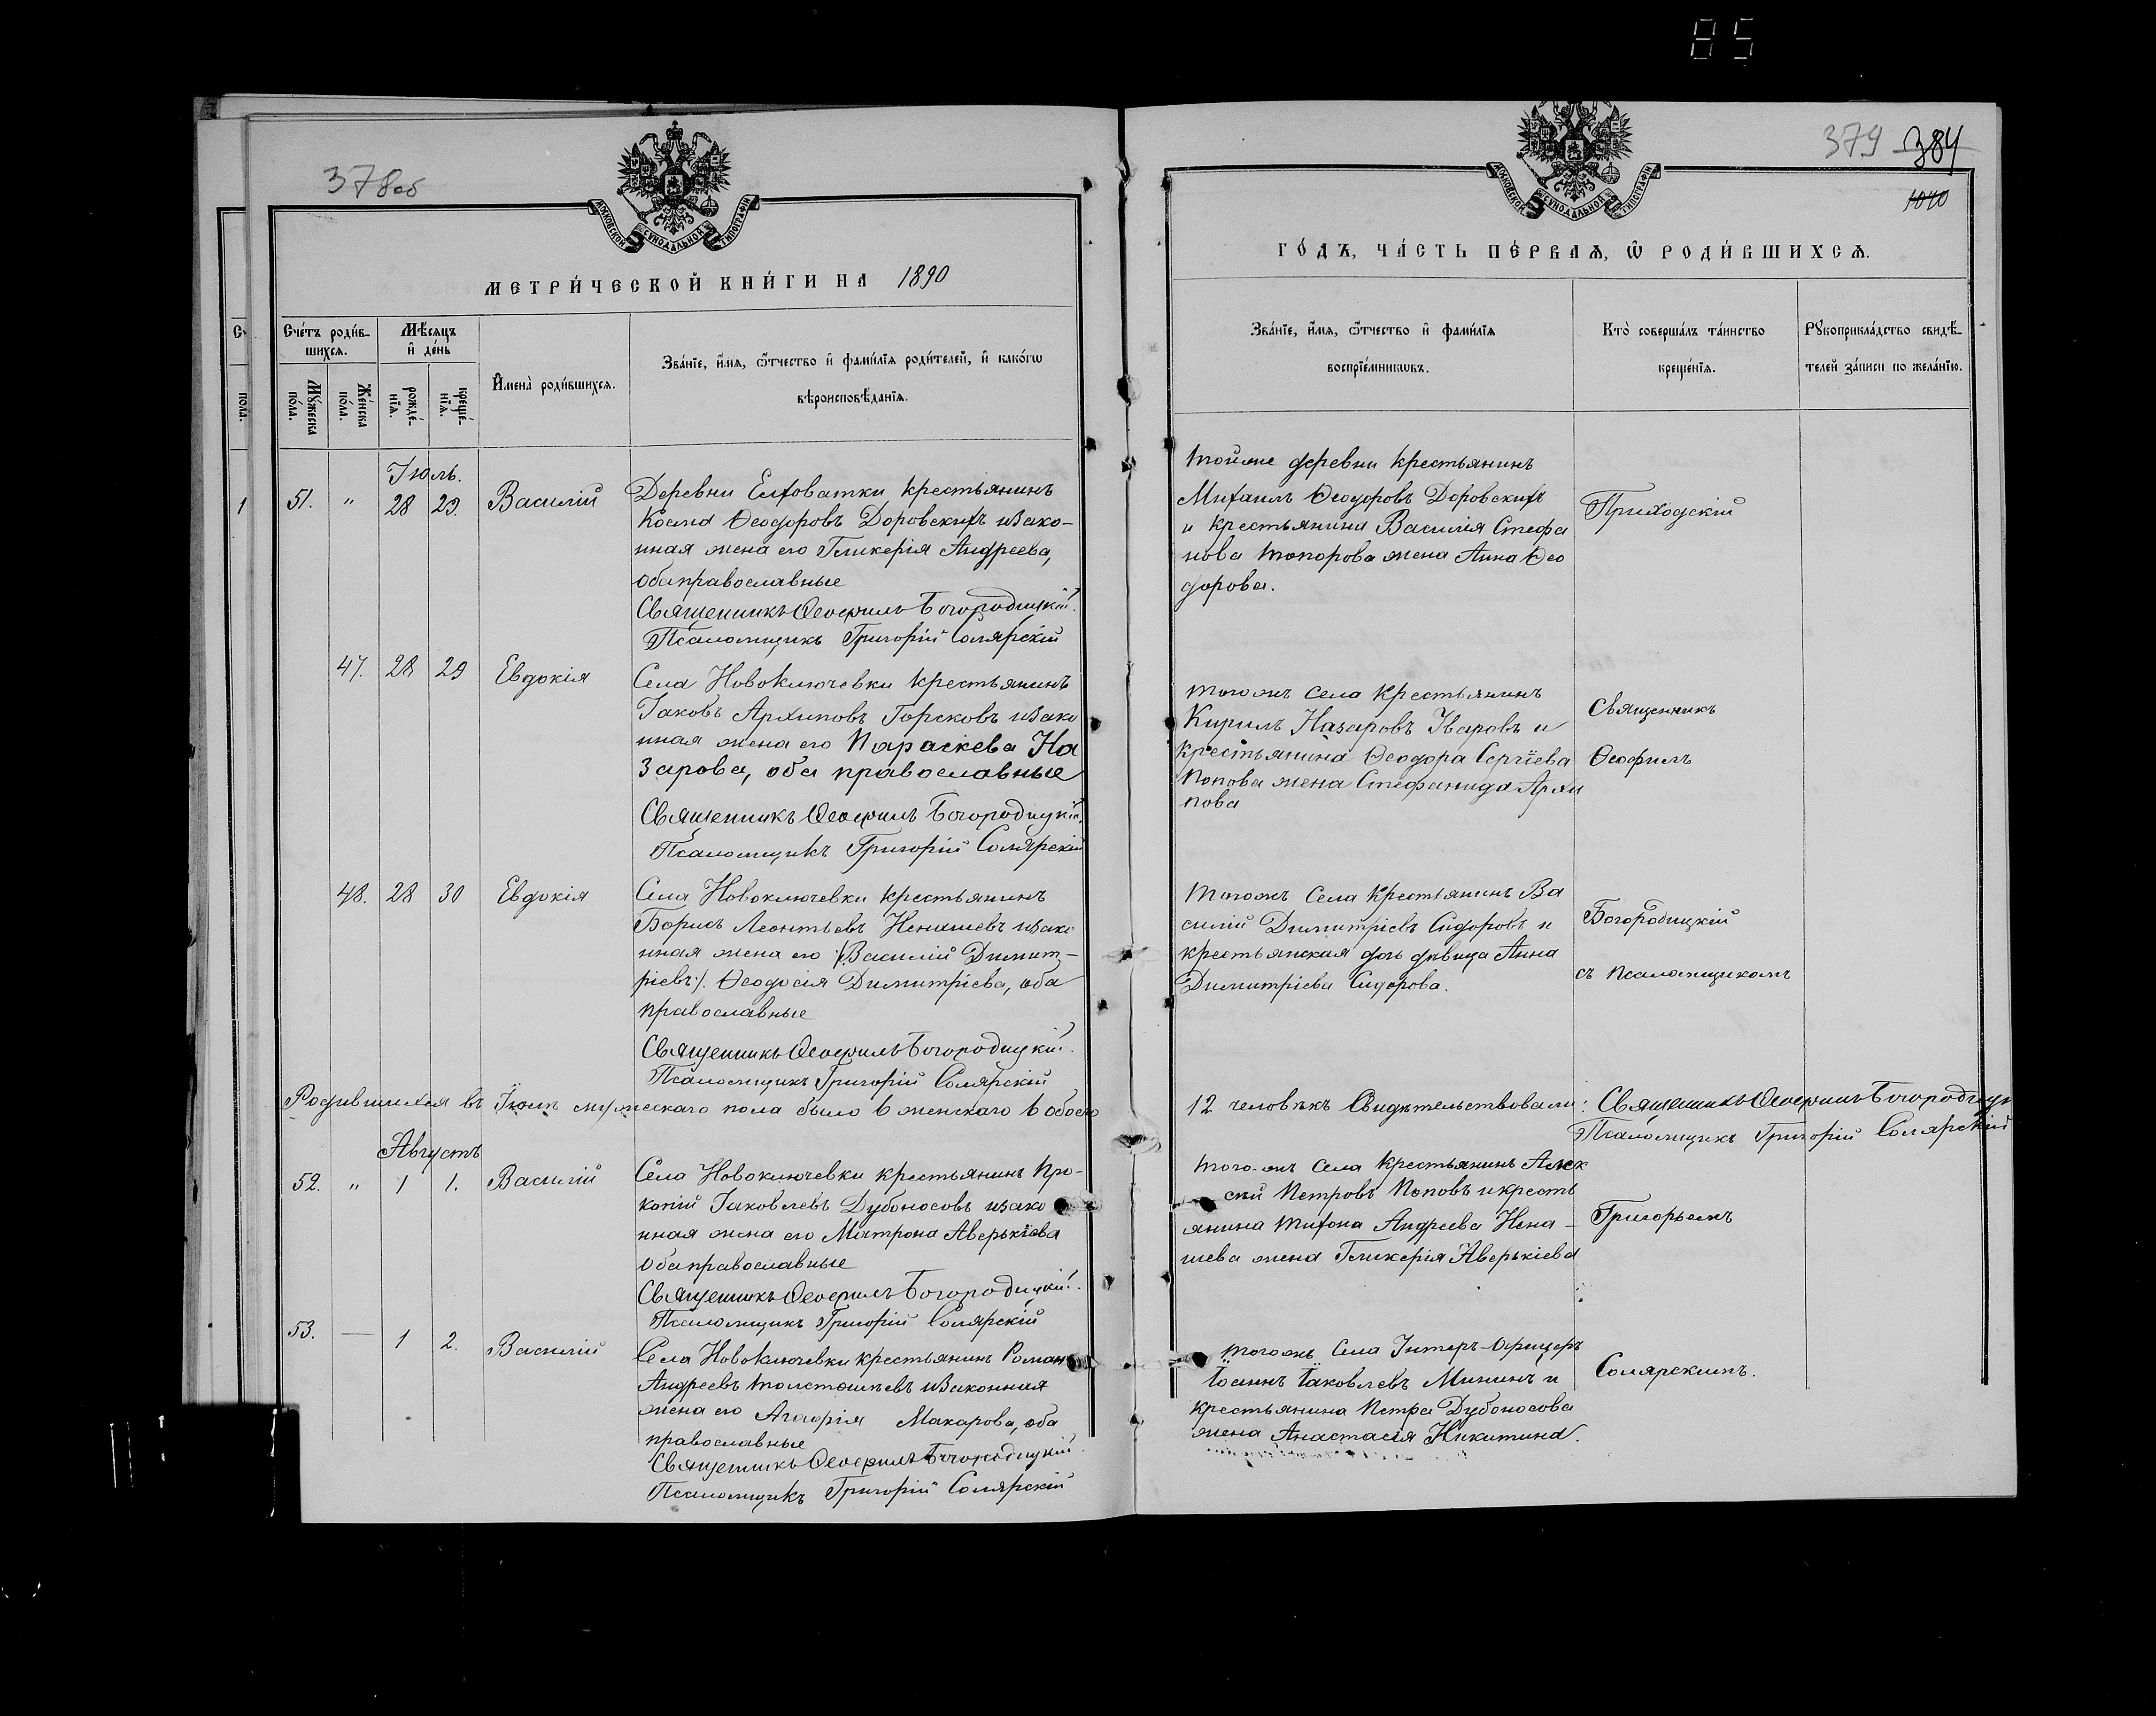 85
378об
МОСКОВСКОЙ СѴНОДАЛЬНОЙ ТИПОГРАФІИ
МЕТРИ́ЧЕСКОЙ КНИ́ГИ НА 1890
Сче́тъ роди́в-
шихсѧ.
Мѣ́сѧцъ
и҆ де́нь
И҆мена̀ роди́вшихсѧ.
Зва́нїе, и҆́мѧ, ѻ҆́тчество и҆ фами́лїѧ роди́телей, и҆ како́гѡ
вѣроисповѣ́данїѧ.
Мꙋ́жеска по́ла.
Же́нска по́ла.
рожде́-
нїѧ.
креще́-
нїѧ.
Іюль.
51. " 28 29. Василій
Деревни Елховатки крестьянинъ
Косма Ѳеодоровъ Доровскихъ изако-
нная жена его Гликерія Андреева,
оба православные
Священникъ Ѳеофилъ Богородицкій.
Псаломщикъ Григорій Солярскій
47. 28 29 Евдокія
Села Новоключевки крестьянинъ
Іаковъ Архиповъ Горсковъ изако
нная жена его Параскева На
зарова, оба православные
Священникъ Ѳеофилъ Богородицкій.
Псаломщикъ Григорій Солярскій
48. 28 30 Евдокія
Села Новоключевки крестьянинъ
Борисъ Леонтьевъ Ненашевъ изако
нная жена его /:Василій Димит-
ріевъ:/. Ѳеодосія Димитріева, оба
православные
Священникъ Ѳеофилъ Богородицкій.
Псаломщикъ Григорій Солярскій
Родившихся въ Іюлѣ мужескаго пола было 6 женскаго 6 обоего
Августъ
52. " 1 1. Василій
Села Новоключевки крестьянинъ Про-
копій Іаковлевъ Дубоносовъ изако
нная жена его Матрона Аверькіева
оба православные
Священникъ Ѳеофилъ Богородицкій.
Псаломщикъ Григорій Солярскій
53. — 1 2. Василій
Села Новоключевки крестьянинъ Романъ
Андреевъ Толстошѣевъ изаконная
жена его Агафія Макарова, оба
православные
Священникъ Ѳеофилъ Богородицкій.
Псаломщикъ Григорій Солярскій
379 384
1010
МОСКОВСКОЙ СѴНОДАЛЬНОЙ ТИПОГРАФІИ
ГО́ДЪ, ЧА́СТЬ ПЕ́РВАѦ, Ѡ҆ РОДИ́ВШИХСѦ.
Зва́нїе, и҆́мѧ, ѻ҆́тчество и҆ фами́лїѧ
воспрїе́мникѡвъ.
Кто̀ соверша́лъ та́инство
креще́нїѧ.
Рꙋкоприкла́дство свидѣ́-
телей за́писи по жела́нїю.
тойже деревни крестьянинъ
Михаилъ Ѳеодоровъ Доровскихъ
и крестьянина Василія Стефа
нова Топорова жена Анна Ѳео
дорова.
Приходскій
тогожъ села крестьянинъ
Кирилъ Назаровъ Уваровъ и
крестьянина Ѳеодора Сергіева
Попова жена Стефанида Архи
пова
Священникъ
Ѳеофилъ
тогожъ села крестьянинъ Ва
силій Димитріевъ Сидоровъ и
крестьянская дочь дѣвица Анна
Димитріева Сидорова.
Богородицкій
съ псаломщикомъ
12 человѣкъ Свидѣтельствовали: Священникъ Ѳеофилъ Богородицк
Псаломщикъ Григорій Солярскій
того-жъ села крестьянинъ Алек
сѣй Петровъ Поповъ и кресть
янина Тихона Андреева Нена-
шева жена Гликерія Аверькіева
Григорьемъ
тогожъ села Унтеръ-Офицеръ
Іоаннъ Іаковлевъ Мининъ и
крестьянина Петра Дубоносова
жена Анастасія Никитина.
Солярскимъ.